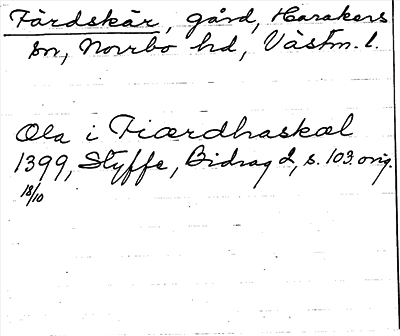 Färdskär, gård, Harakers
sn, Norrbo hd, Västm. l.
Ola i Fiærdhaskæl
1399, Styffe, Bidrag 2, s. 103. orig.
18/10